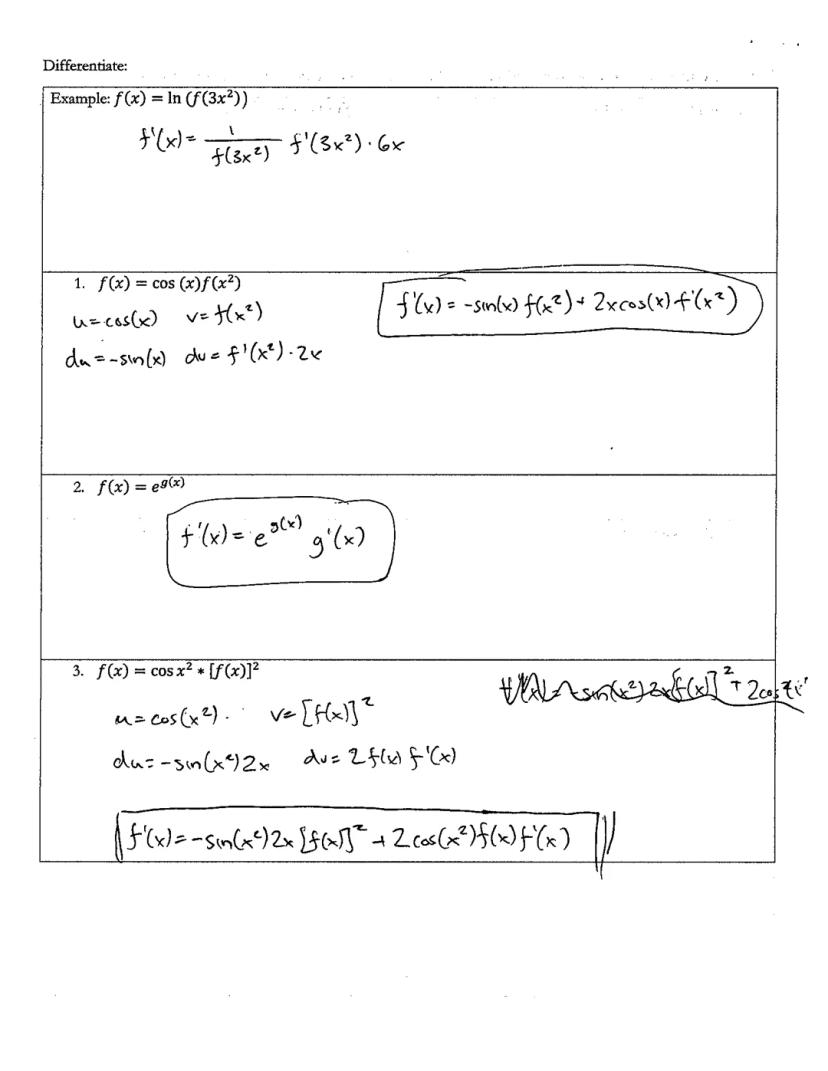 Differentiate:
Example: f(x) = ln (f(3x²))
f'(x) = 1/f(3x²) f'(3x²) · 6x
1. f(x) = cos (x)f(x²)
u = cos(x) v = f(x²)
du = -sin(x) dv = f'(x²) · 2x
f'(x) = -sin(x) f(x²) + 2x cos(x) f'(x²)
2. f(x) = e^g(x)
f'(x) = e^g(x) g'(x)
3. f(x) = cos x² * [f(x)]²
-sin(x²) 2x [f(x)]² + 2cos
u = cos(x²) · v = [f(x)]²
du = -sin(x²) 2x dv = 2 f(x) f'(x)
f'(x) = -sin(x²) 2x [f(x)]² + 2 cos(x²) f(x) f'(x)